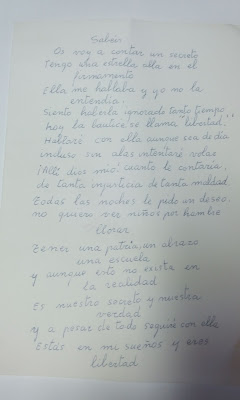 Os voy a contar un secreto
Tengo una estrella alla en el
firmamento
Ella me hablaba y yo no la
entendia.
Siento haberla ignorado tanto tiempo
hoy la bauticé se llama "libertad".
Hablaré con ella aunque sea de dia
incluso sin alas intentaré volar
¡Ahh dios mio! cuanto le contaria.
de tanta injusticia de tanta maldad.
Todas las noches le pido un deseo.
no quiero ver niños por hambre
llorar
Tener una patria, un abrazo
una escuela
y aunque esto no exista en
la realidad
Es nuestro secreto y nuestra
verdad
y a pesar de todo seguiré con ella
Estás en mi sueños y eres
libertad